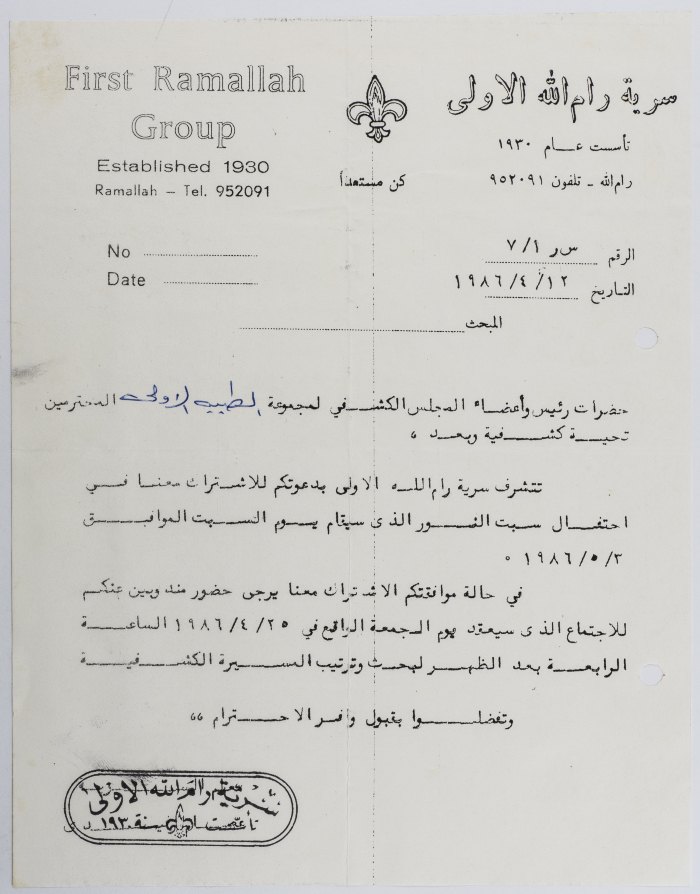 First Ramallah
Group
Established 1930
Ramallah – Tel. 952091
سرية رام الله الاولى
تأسست عـــام ١٩٣٠
رام الله ـ تلفون ٩٥٢٠٩١
كن مستعداً
No
Date
الرقم س ر ٧/١
التاريخ ١٩٨٦/٤/١٢
المبحث
حضرات رئيس وأعضاء المجلس الكشفي لمجموعة الطيبه الاولى المحترمين
تحية كشفية وبعد ،
تتشرف سرية رام الله الاولى بدعوتكم للاشتراك معنا في
احتفال سبت النور الذى سيقام يوم السبت الموافق
١٩٨٦/٥/٢ ٠
في حالة موافقتكم الاشتراك معنا يرجى حضور مندوبين عنكم
للاجتماع الذى سيعقد يوم الجمعة الواقع في ١٩٨٦/٤/٢٥ الساعة
الرابعة بعد الظهر لبحث وترتيب المسيرة الكشفية
وتفضلوا بقبول وافر الاحترام ،،
سرية رام الله الاولى
تأسست سنة ١٩٣٠